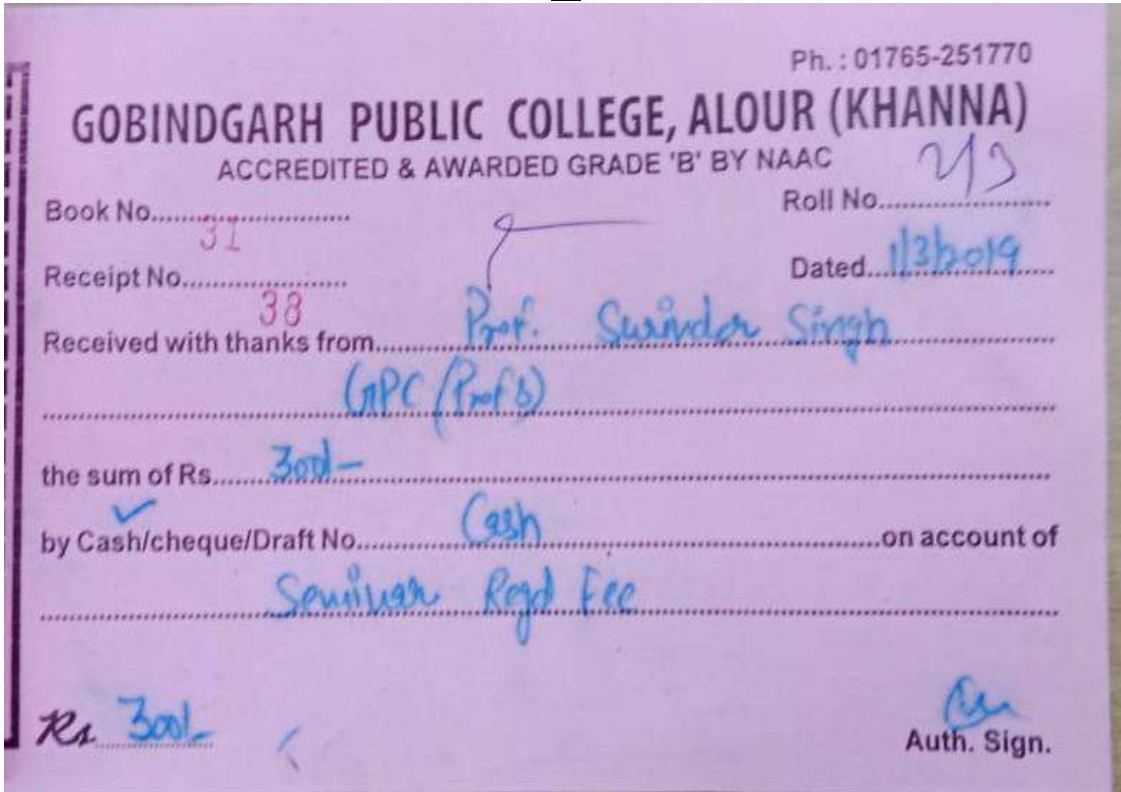 Ph. : 01765-251770
GOBINDGARH PUBLIC COLLEGE, ALOUR (KHANNA)
ACCREDITED & AWARDED GRADE 'B' BY NAAC
Book No.......................... 31
Roll No......................
Receipt No...................... 38
Dated....1/3/2019....
Received with thanks from........Prof. Surinder Singh........
GPC
the sum of Rs.......300/-........
by Cash/cheque/Draft No........Cash........on account of
Seminar Regd Fee
Rs 300/-
Auth. Sign.